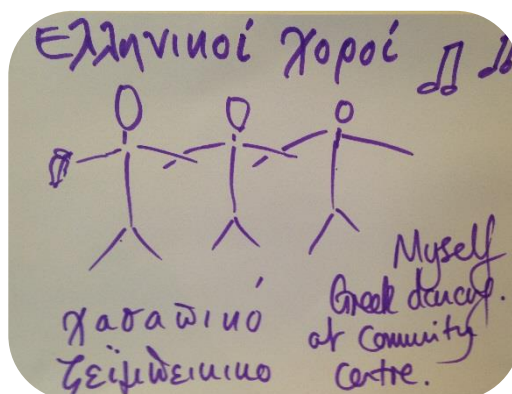 Ελληνικοί χοροί
χασαπικό
ζεϊμπεικικο
Myself
Greek dancing.
at Community
Centre.